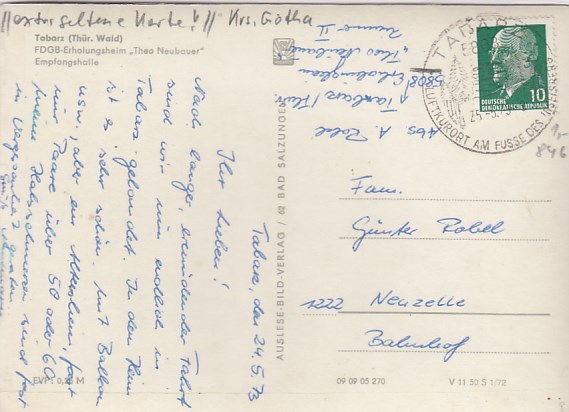 //extra seltene Karte!// Krs. Gotha
Tabarz (Thür. Wald)
FDGB-Erholungsheim „Theo Neubauer"
Empfangshalle
Tabarz, den 24.5.73
Ihr Lieben!
Nach langer, ermüdender Fahrt
sind wir nun endlich in
Tabarz gelandet. Das Heim
ist sehr schön. mit Balkon
usw. aber ein Altersheim, fast
nur Paare über 50 oder 60.
Meine Halsschmerzen sind fast
in Vergessenheit geraten.
EVP: 0,20 M
AUSLESE-BILD-VERLAG / 62 BAD SALZUNGEN
Abs. A. Pobel
Tabarz / Thür
5808 Erholungsheim
„Theo Neubauer"
Zimmer
TABARZ
5808
LUFTKURORT AM FUSSE DES INSELSBERG
DEUTSCHE
DEMOKRATISCHE REPUBLIK
10
846
Fam.
Günter Pobel
1222 Neuzelle
Bahnhof
09 09 05 270
V 11 50 S 1/72